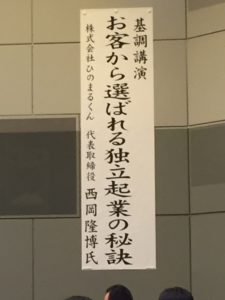 基調講演
お客から選ばれる独立起業の秘訣
株式会社ひのまるくん 代表取締役 西岡隆博氏